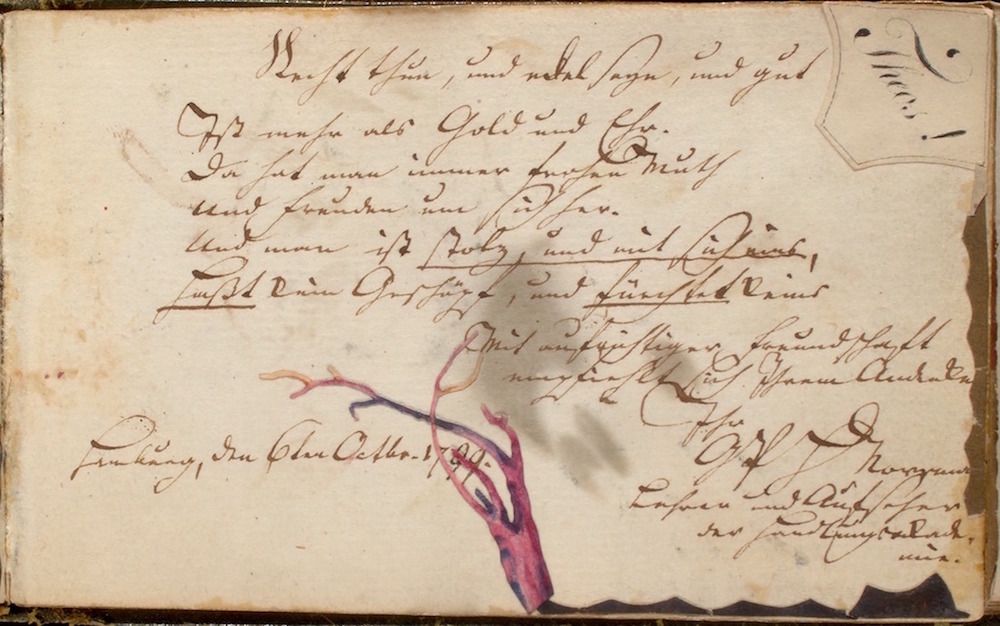 Recht thun, und edel seyn, und gut
Theos!
Ist mehr als Gold und Ehr.
Da hat man immer frohen Muth
Und Freuden um sich her.
Und man ist stolz, und mit sich eins,
Haßt kein Geschöpf, und fürchtet keins
Mit aufrichtiger Freundschaft
empfiehlt sich Ihrem Andenke
Ihr
Hamburg, den 6ten Octbr. 1799.
Lehrer und Aufseher
der Handlungsakade-
mie.